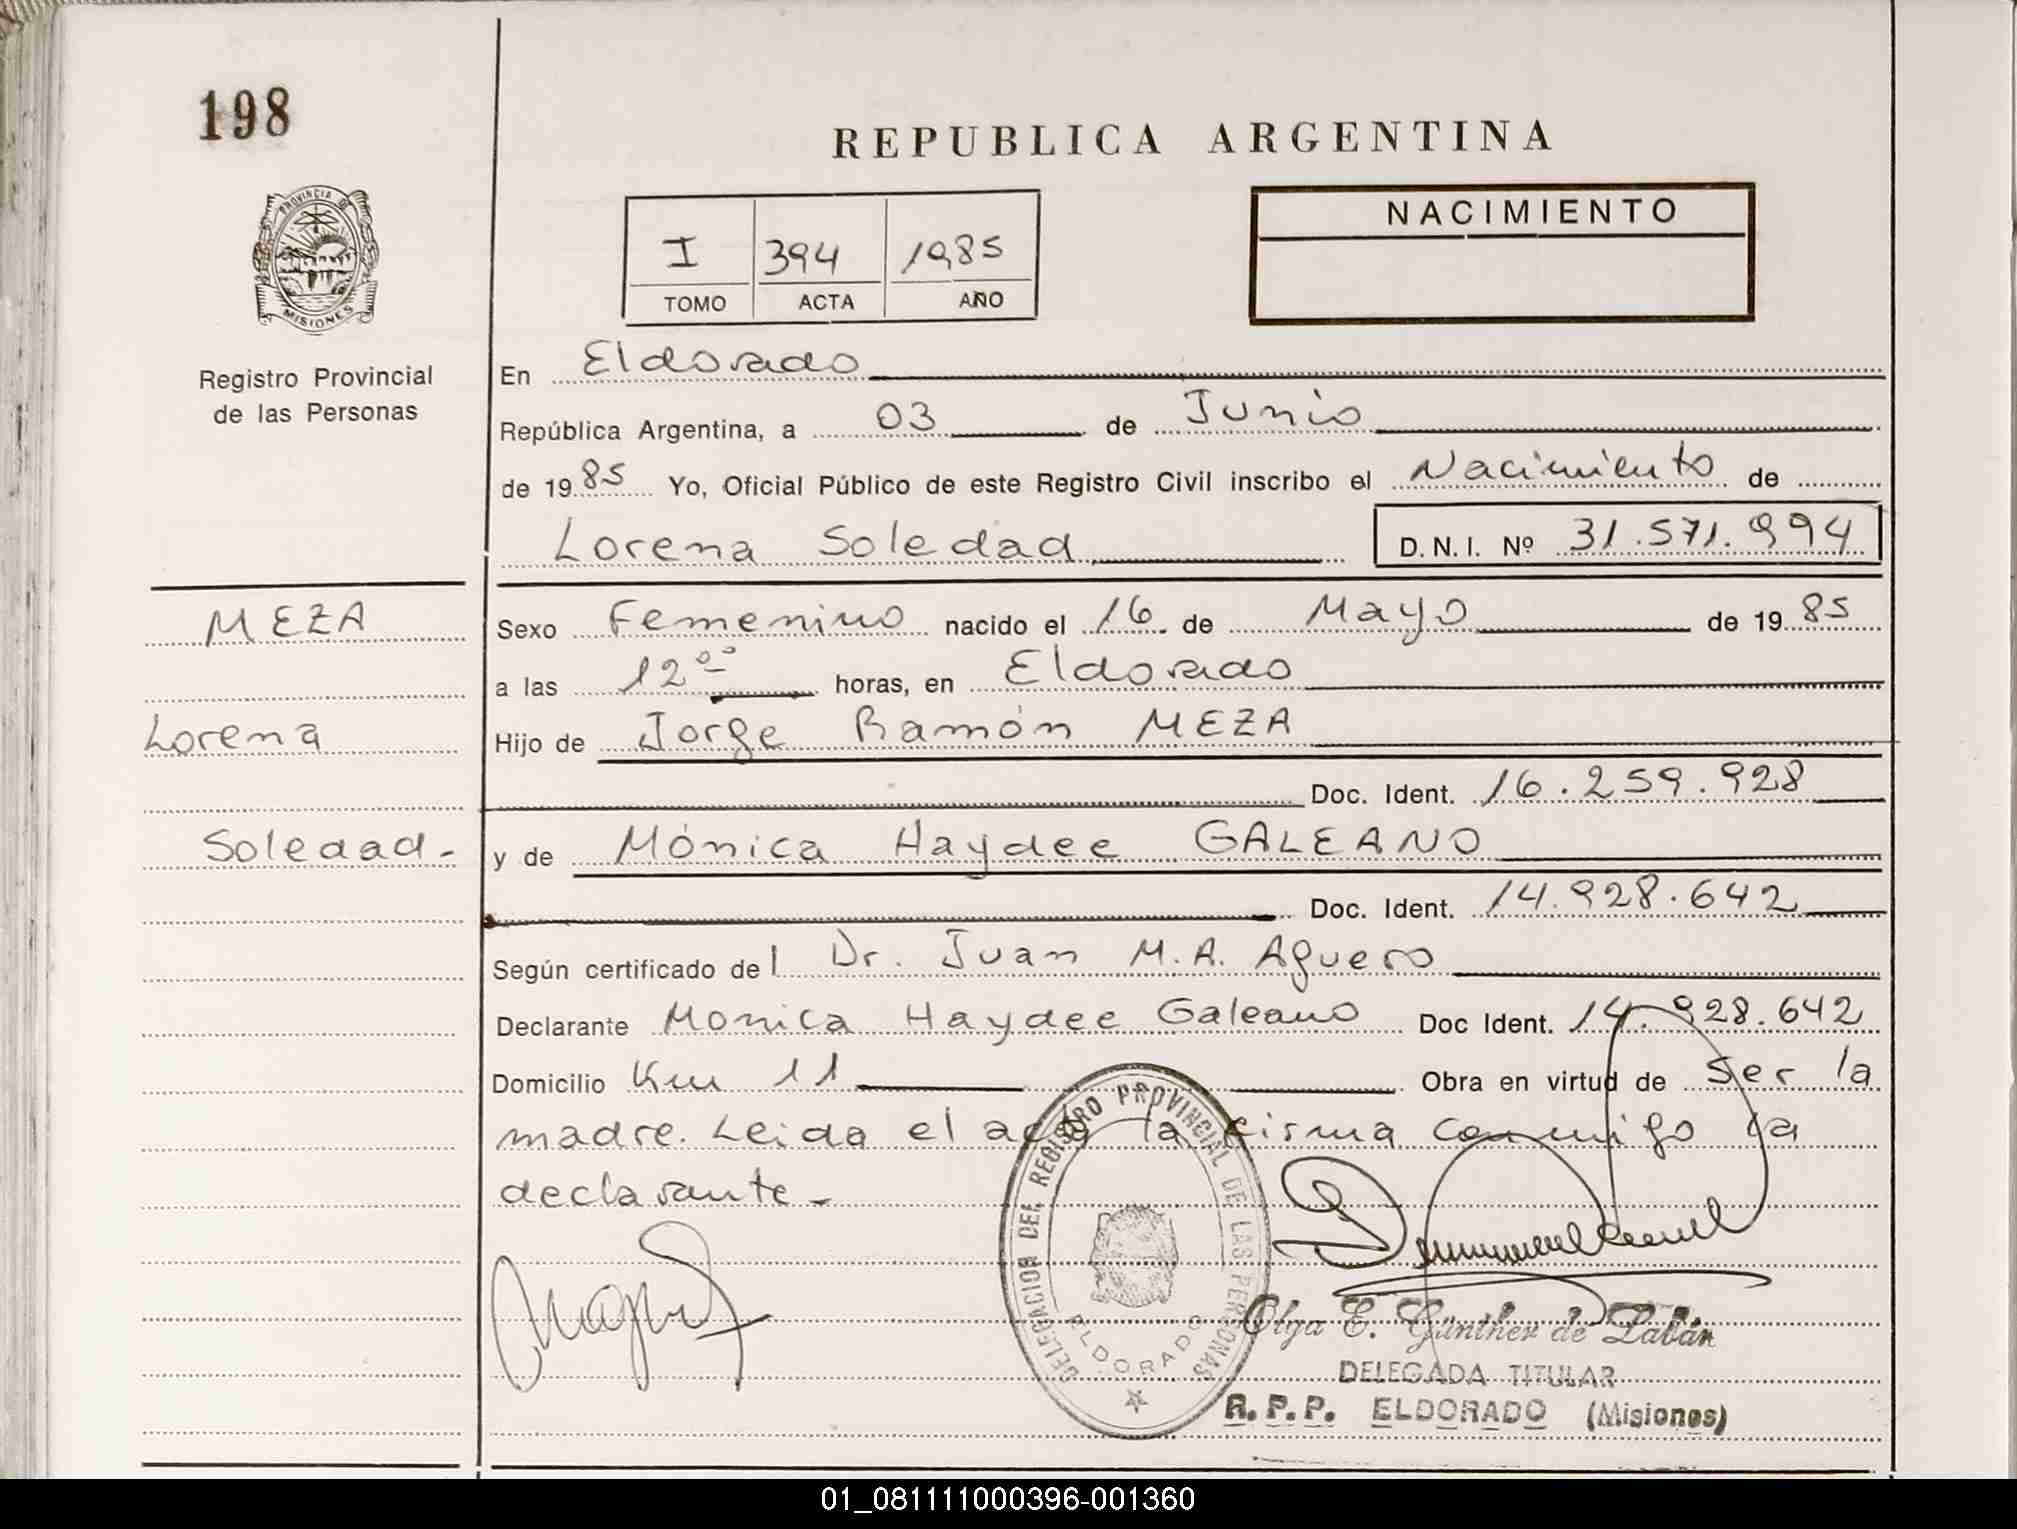 198
REPUBLICA ARGENTINA
PROVINCIA DE
MISIONES
Registro Provincial
de las Personas
I 394 1985
TOMO ACTA AÑO
NACIMIENTO
En Eldorado
República Argentina, a 03 de Junio
de 1985 Yo, Oficial Público de este Registro Civil inscribo el Nacimiento de
Lorena Soledad D.N.I. Nº 31.571.994
MEZA
Lorena
Soledad-
Sexo Femenino nacido el 16 de Mayo de 1985
a las 12°° horas, en Eldorado
Hijo de Jorge Ramón MEZA
Doc. Ident. 16.259.928
y de Mónica Haydee GALEANO
Doc. Ident. 14.928.642
Según certificado del Dr. Juan M.A. Aguero
Declarante Monica Haydee Galeano Doc Ident. 14.928.642
Domicilio Km 11 Obra en virtud de Ser la
madre. Leida el acta la firma conmigo la
declarante-
DELEGACION DEL REGISTRO PROVINCIAL DE LAS PERSONAS
ELDORADO
Olga E. Günther de Labán
DELEGADA TITULAR
R.P.P. ELDORADO (Misiones)
01_081111000396-001360